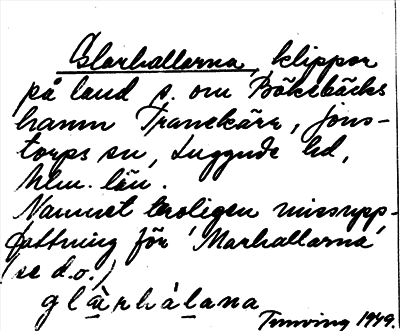 Glarhallarna, klippor
på land s. om Bökebäcks
hamn Tranekärr, Jons-
torps sn, Luggude hd,
Mlm. län.
Namnet troligen missupp-
fattning för 'Marhallarna'
(se d.o.)
1949.